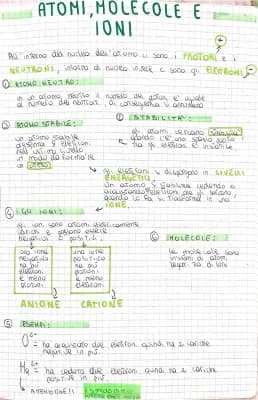 ATOMI, MOLECOLE E
IONI
All'interno del nucleo dell'atomo ci sono i PROTONI e i
NEUTRONI, intorno al nucleo invece ci sono gli ELETTRONI
① ATOMO NEUTRO:
in un atomo neutro il numero dei protoni è uguale
al numero dei neutroni, di conseguenza si annullano
② STABILITÀ:
gli atomi cercano
quando c'è uno stesso
tra gli elettroni e
③ ATOMO STABILE:
un atomo stabile
dispone 8 elettroni
nell'ultimo livello
in modo da formare
un
gli elettroni si dispongono in LIVELLI
ENERGETICI
Un atomo si stabilizza cedendo o
acquistando elettroni che gli
quando lo fa si trasforma in uno
IONE.
④ GLI IONI:
gli ioni sono atomi elettricamente
carichi e possono essere
negativi o positivi
uno ione
negativo
ha più
elettroni
e meno
protoni
uno ione
positivo
ha più
protoni
e meno
elettroni
ANIONE
CATIONE
⑥ MOLECOLE:
Le molecole sono
insiemi di atomi
legati tra di loro
⑤ ESEMPI:
O²⁻
= ha acquisito due elettroni quindi ha 2 cariche
negative in più.
Mg²⁺
= ha ceduto due elettroni quindi ha 2 cariche
positive in più.
ATTENZIONE!!